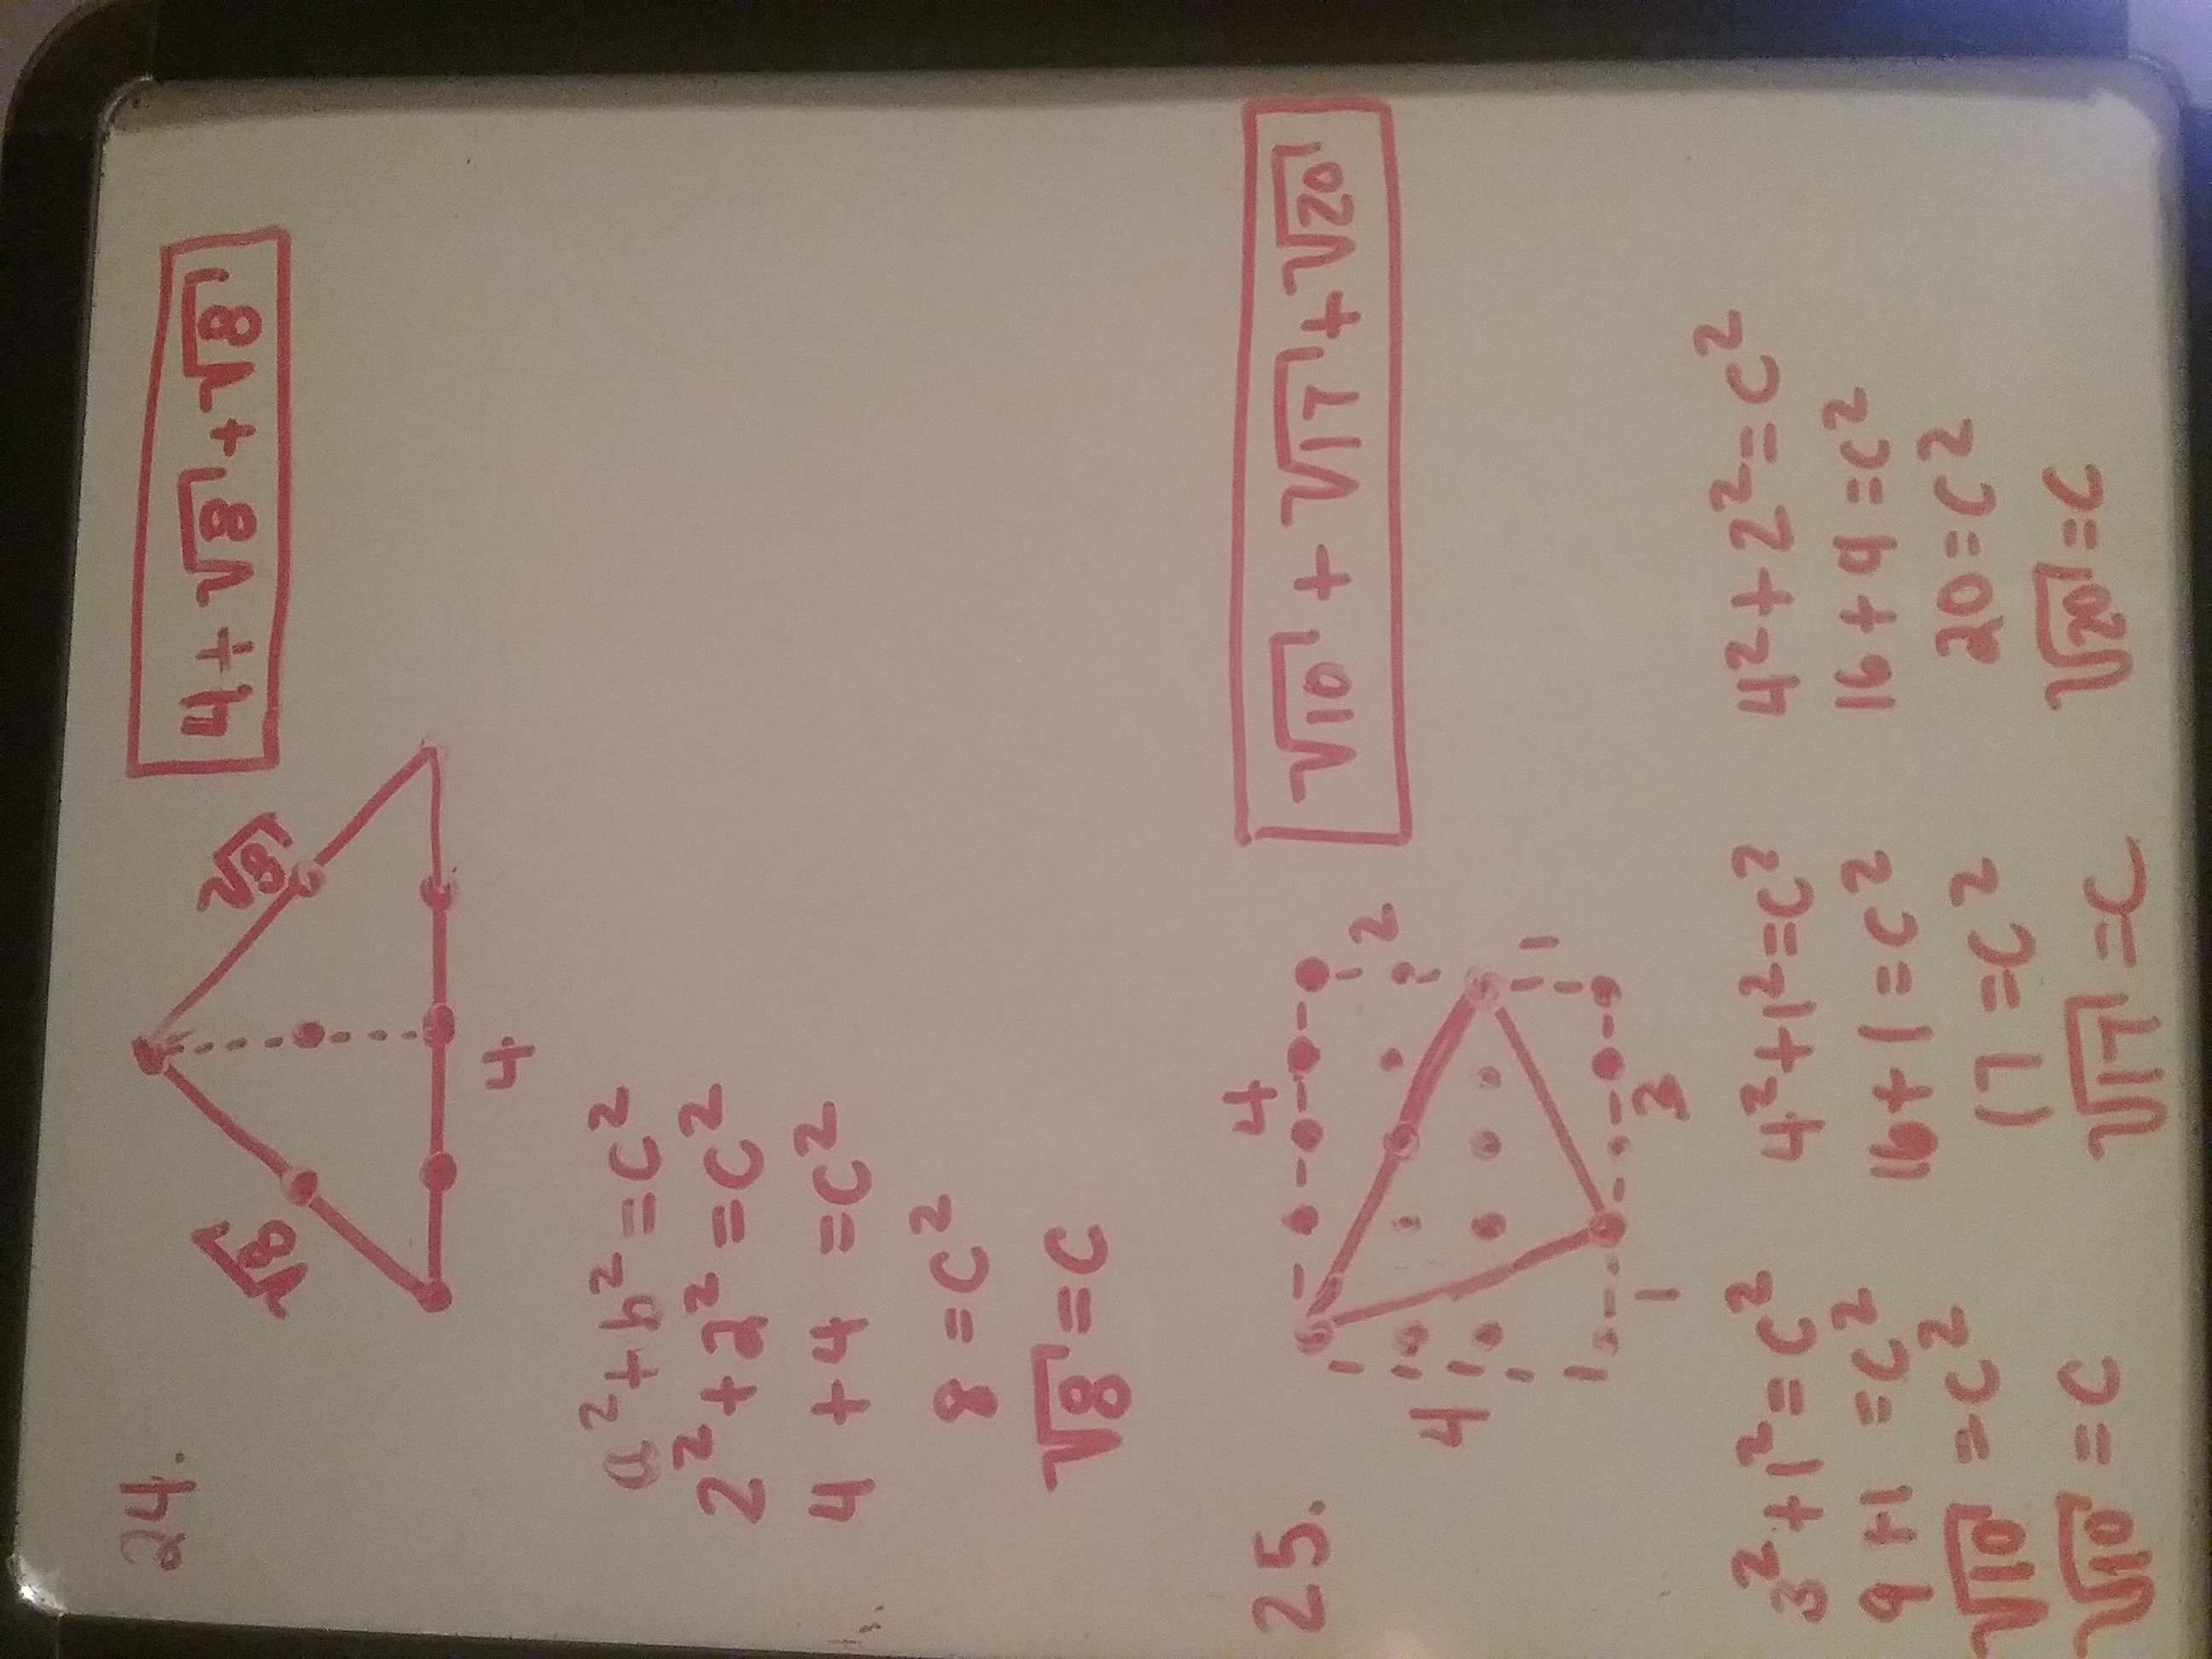 24.
4 + √8 + √8
√8
√8
4
a² + b² = c²
2² + 2² = c²
4 + 4 = c²
8 = c²
√8 = c
25.
√10 + √17 + √20
4
2
4
1
1
3
3² + 1² = c²
9 + 1 = c²
√10 = c²
√10 = c
4² + 1² = c²
16 + 1 = c²
17 = c²
√17 = c
4² + 2² = c²
16 + 4 = c²
20 = c²
√20 = c